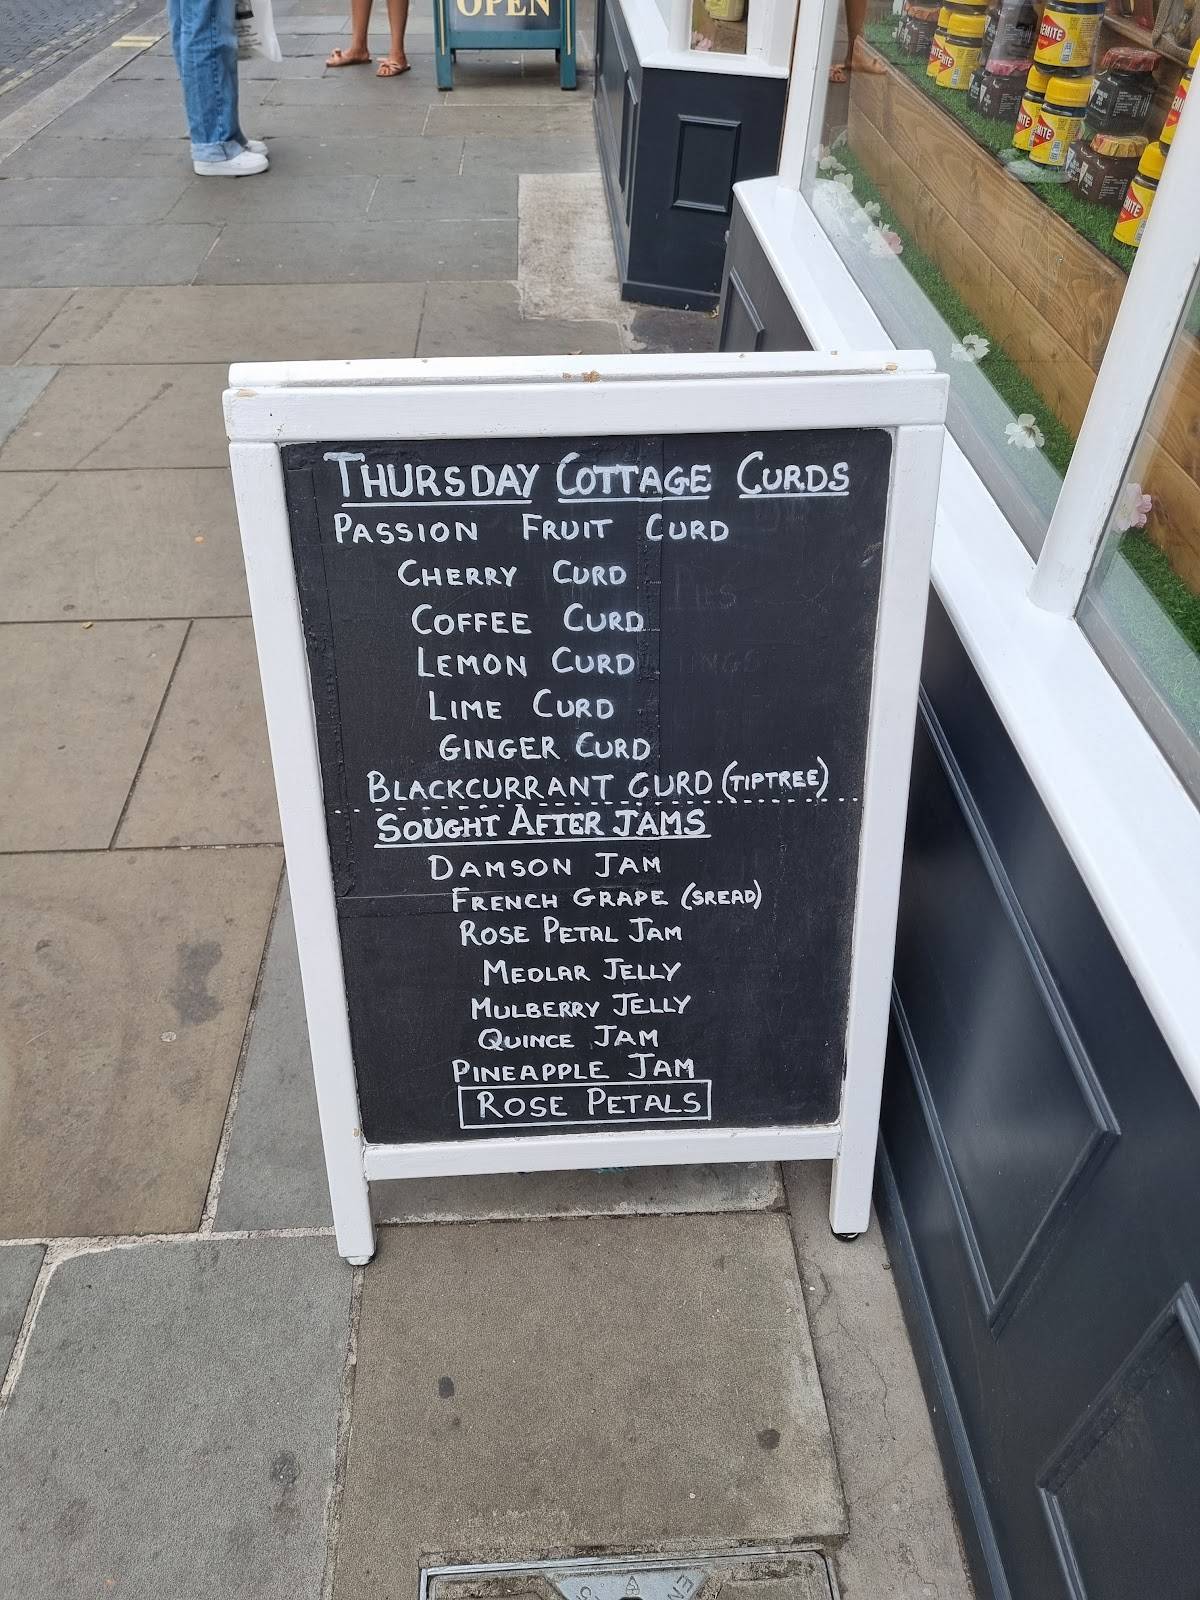 OPEN
THURSDAY COTTAGE CURDS
PASSION FRUIT CURD
CHERRY CURD
COFFEE CURD
LEMON CURD
LIME CURD
GINGER CURD
BLACKCURRANT CURD (TIPTREE)
SOUGHT AFTER JAMS
DAMSON JAM
FRENCH GRAPE (SREAD)
ROSE PETAL JAM
MEDLAR JELLY
MULBERRY JELLY
QUINCE JAM
PINEAPPLE JAM
ROSE PETALS